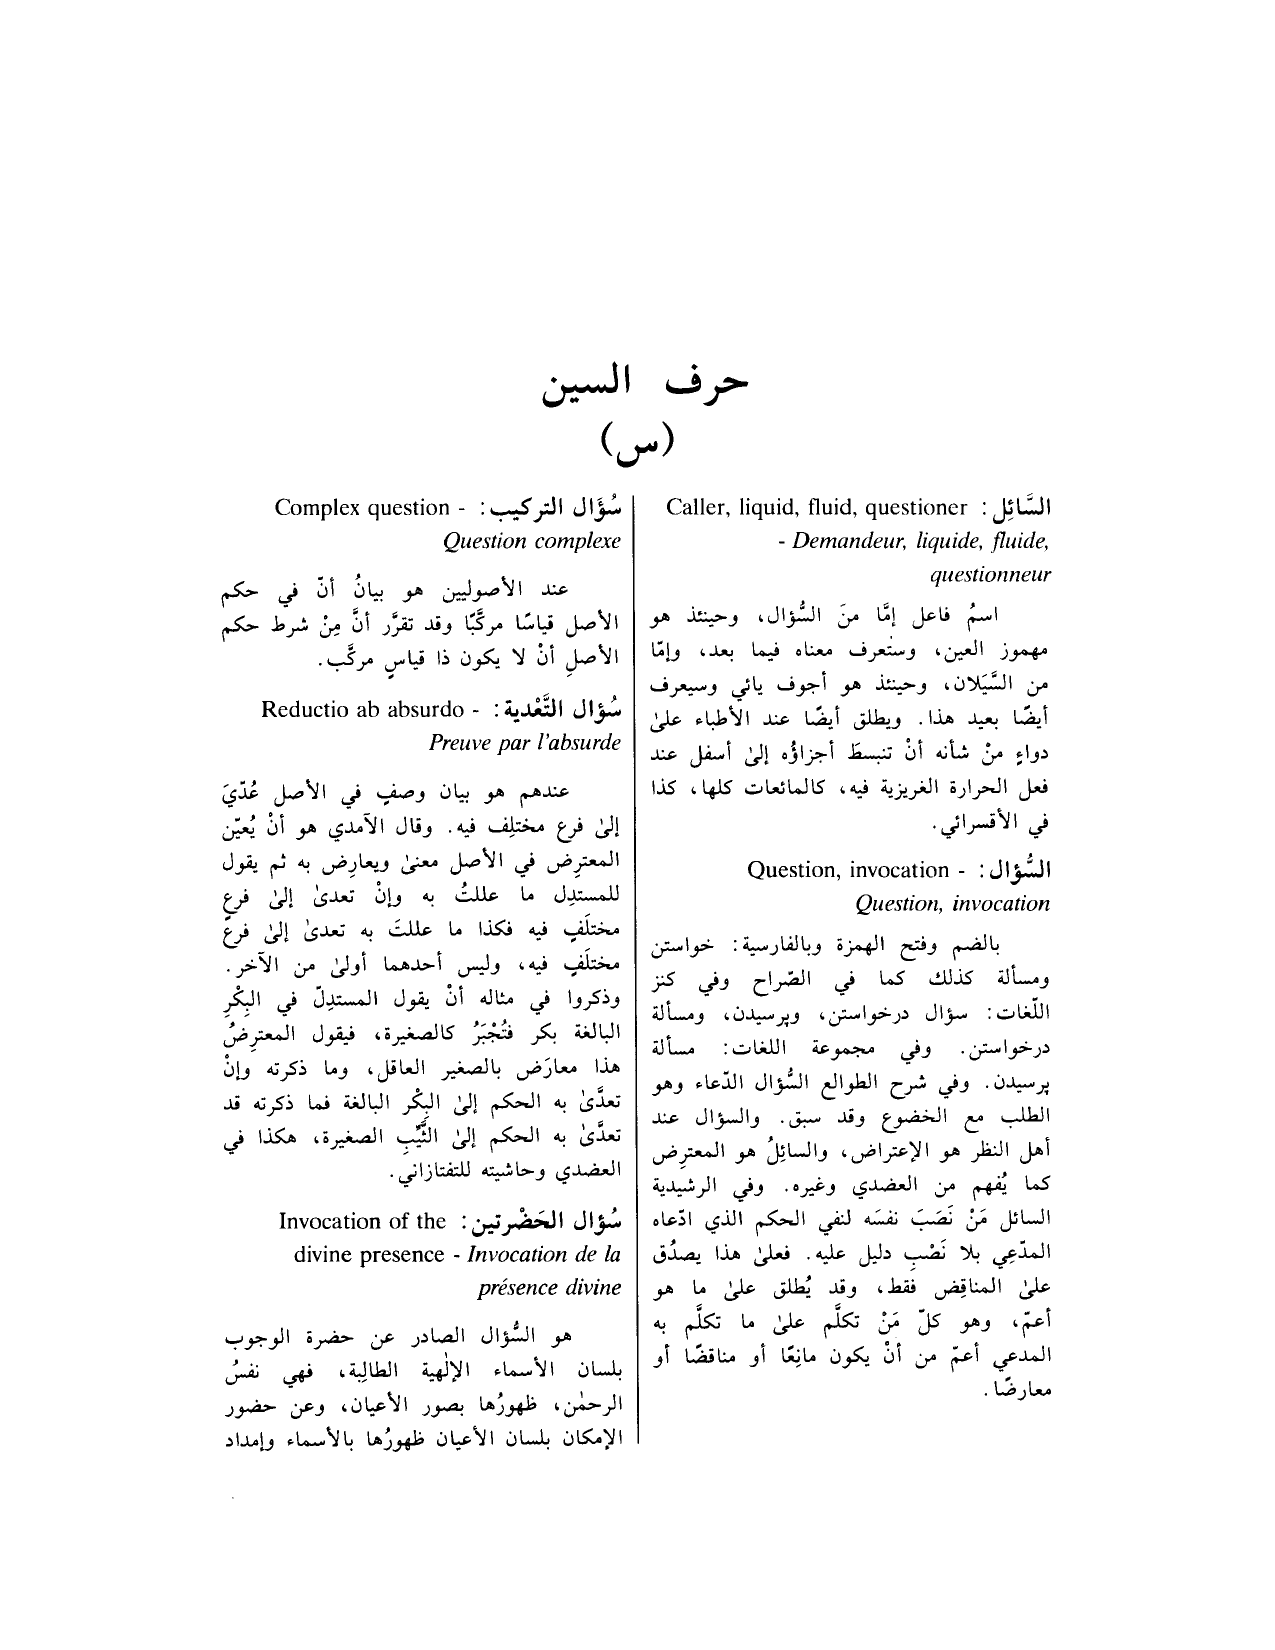 حرف السين
(س)
السَّائِل: Caller, liquid, fluid, questioner
- Demandeur, liquide, fluide,
questionneur
اسمُ فاعل إمَّا منَ السُّؤال، وحينئذ هو
مهموز العين، وستعرف معناه فيما بعد، وإمّا
من السَّيَلان، وحينئذ هو أجوف يائي وسيعرف
أيضًا بعيد هذا. ويطلق أيضًا عند الأطباء علىٰ
دواءٍ منْ شأنه أنْ تنبسطَ أجزاؤُه إلىٰ أسفل عند
فعل الحرارة الغريزية فيه، كالمائعات كلها، كذا
في الأقسرائي.
السُّؤال: - Question, invocation
Question, invocation
بالضم وفتح الهمزة وبالفارسية: خواستن
ومسألة كذلك كما في الصّراح وفي كنز
اللّغات: سؤال درخواستن، وپرسيدن، ومسألة
درخواستن. وفي مجموعة اللغات: مسألة
پرسيدن. وفي شرح الطوالع السُّؤال الدّعاء وهو
الطلب مع الخضوع وقد سبق. والسؤال عند
أهل النظر هو الإعتراض، والسائِلُ هو المعترِض
كما يُفهم من العضدي وغيره. وفي الرشيدية
السائل مَنْ نَصَبَ نفسَه لنفي الحكم الذي ادّعاه
المدّعِي بلا نَصْبِ دليل عليه. فعلىٰ هذا يصدُق
علىٰ المناقِض فقط، وقد يُطلق علىٰ ما هو
أعمّ، وهو كلّ مَنْ تكلَّم علىٰ ما تكلَّم به
المدعي أعمّ من أنْ يكون مانِعًا أو مناقضًا أو
معارضًا.
سُؤَال التركيب: - Complex question
Question complexe
عند الأصوليين هو بيانُ أنّ في حكم
الأصل قياسًا مركَّبًا وقد تقرَّر أنَّ مِنْ شرط حكم
الأصلِ أنْ لا يكون ذا قياسٍ مركَّب.
سُؤال التَّعْدية: - Reductio ab absurdo
Preuve par l'absurde
عندهم هو بيان وصفٍ في الأصل عُدّيَ
إلىٰ فرع مختلِف فيه. وقال الآمدي هو أنْ يُعيّن
المعترِض في الأصل معنىٰ ويعارِض به ثم يقول
للمستدِل ما عللتُ به وإنْ تعدىٰ إلىٰ فرعٍ
مختلَفٍ فيه فكذا ما عللتَ به تعدىٰ إلىٰ فرعٍ
مختلَفٍ فيه، وليس أحدهما أولىٰ من الآخر.
وذكروا في مثاله أنْ يقول المستدِلّ في البِكْرِ
البالغة بكر فتُجْبَرُ كالصغيرة، فيقول المعترِضُ
هذا معارَض بالصغير العاقل، وما ذكرته وإنْ
تعدَّىٰ به الحكم إلىٰ البِكْر البالغة فما ذكرته قد
تعدَّىٰ به الحكم إلىٰ الثَّيِّبِ الصغيرة، هكذا في
العضدي وحاشيته للتفتازاني.
سُؤال الحَضْرتين: Invocation of the
divine presence - Invocation de la
présence divine
هو السُّؤال الصادر عن حضرة الوجوب
بلسان الأسماء الإلٰهية الطالِبة، فهي نفسُ
الرحمٰن، ظهورُها بصور الأعيان، وعن حضور
الإمكان بلسان الأعيان ظهورُها بالأسماء وإمداد